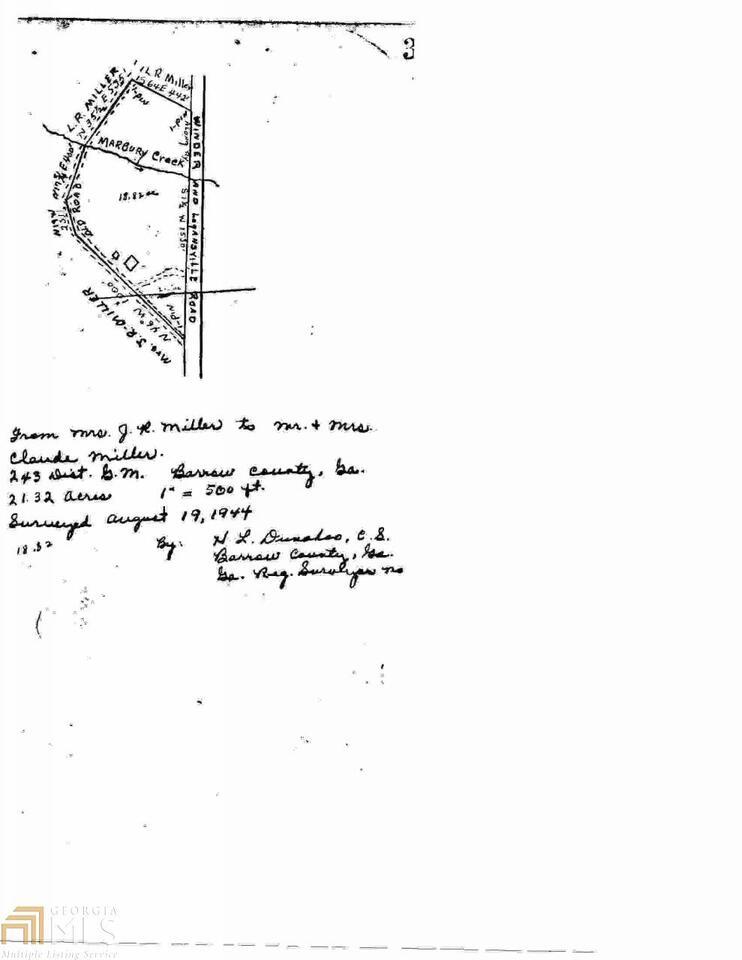 3
L R Miller
S 64 E 442'
L.R. MILLER
N 35½ E 535
I-PIN
I-PIN
MARBURY Creek
WINDER AND LOGANSVILLE ROAD
18.82 ac
OLD ROAD
1000
I-PIN
N 46 W
MRS. J.R. MILLER
From Mrs. J. R. Miller to Mr. + Mrs.
Claude Miller.
243 Dist. G.M. Barrow County, Ga.
21.32 Acres 1" = 500 ft.
Surveyed August 19, 1944
18.82
By: H L. Dunahoo, C.S.
Barrow County, Ga.
Ga. Reg. Surveyor no
GEORGIA
MLS
Multiple Listing Service